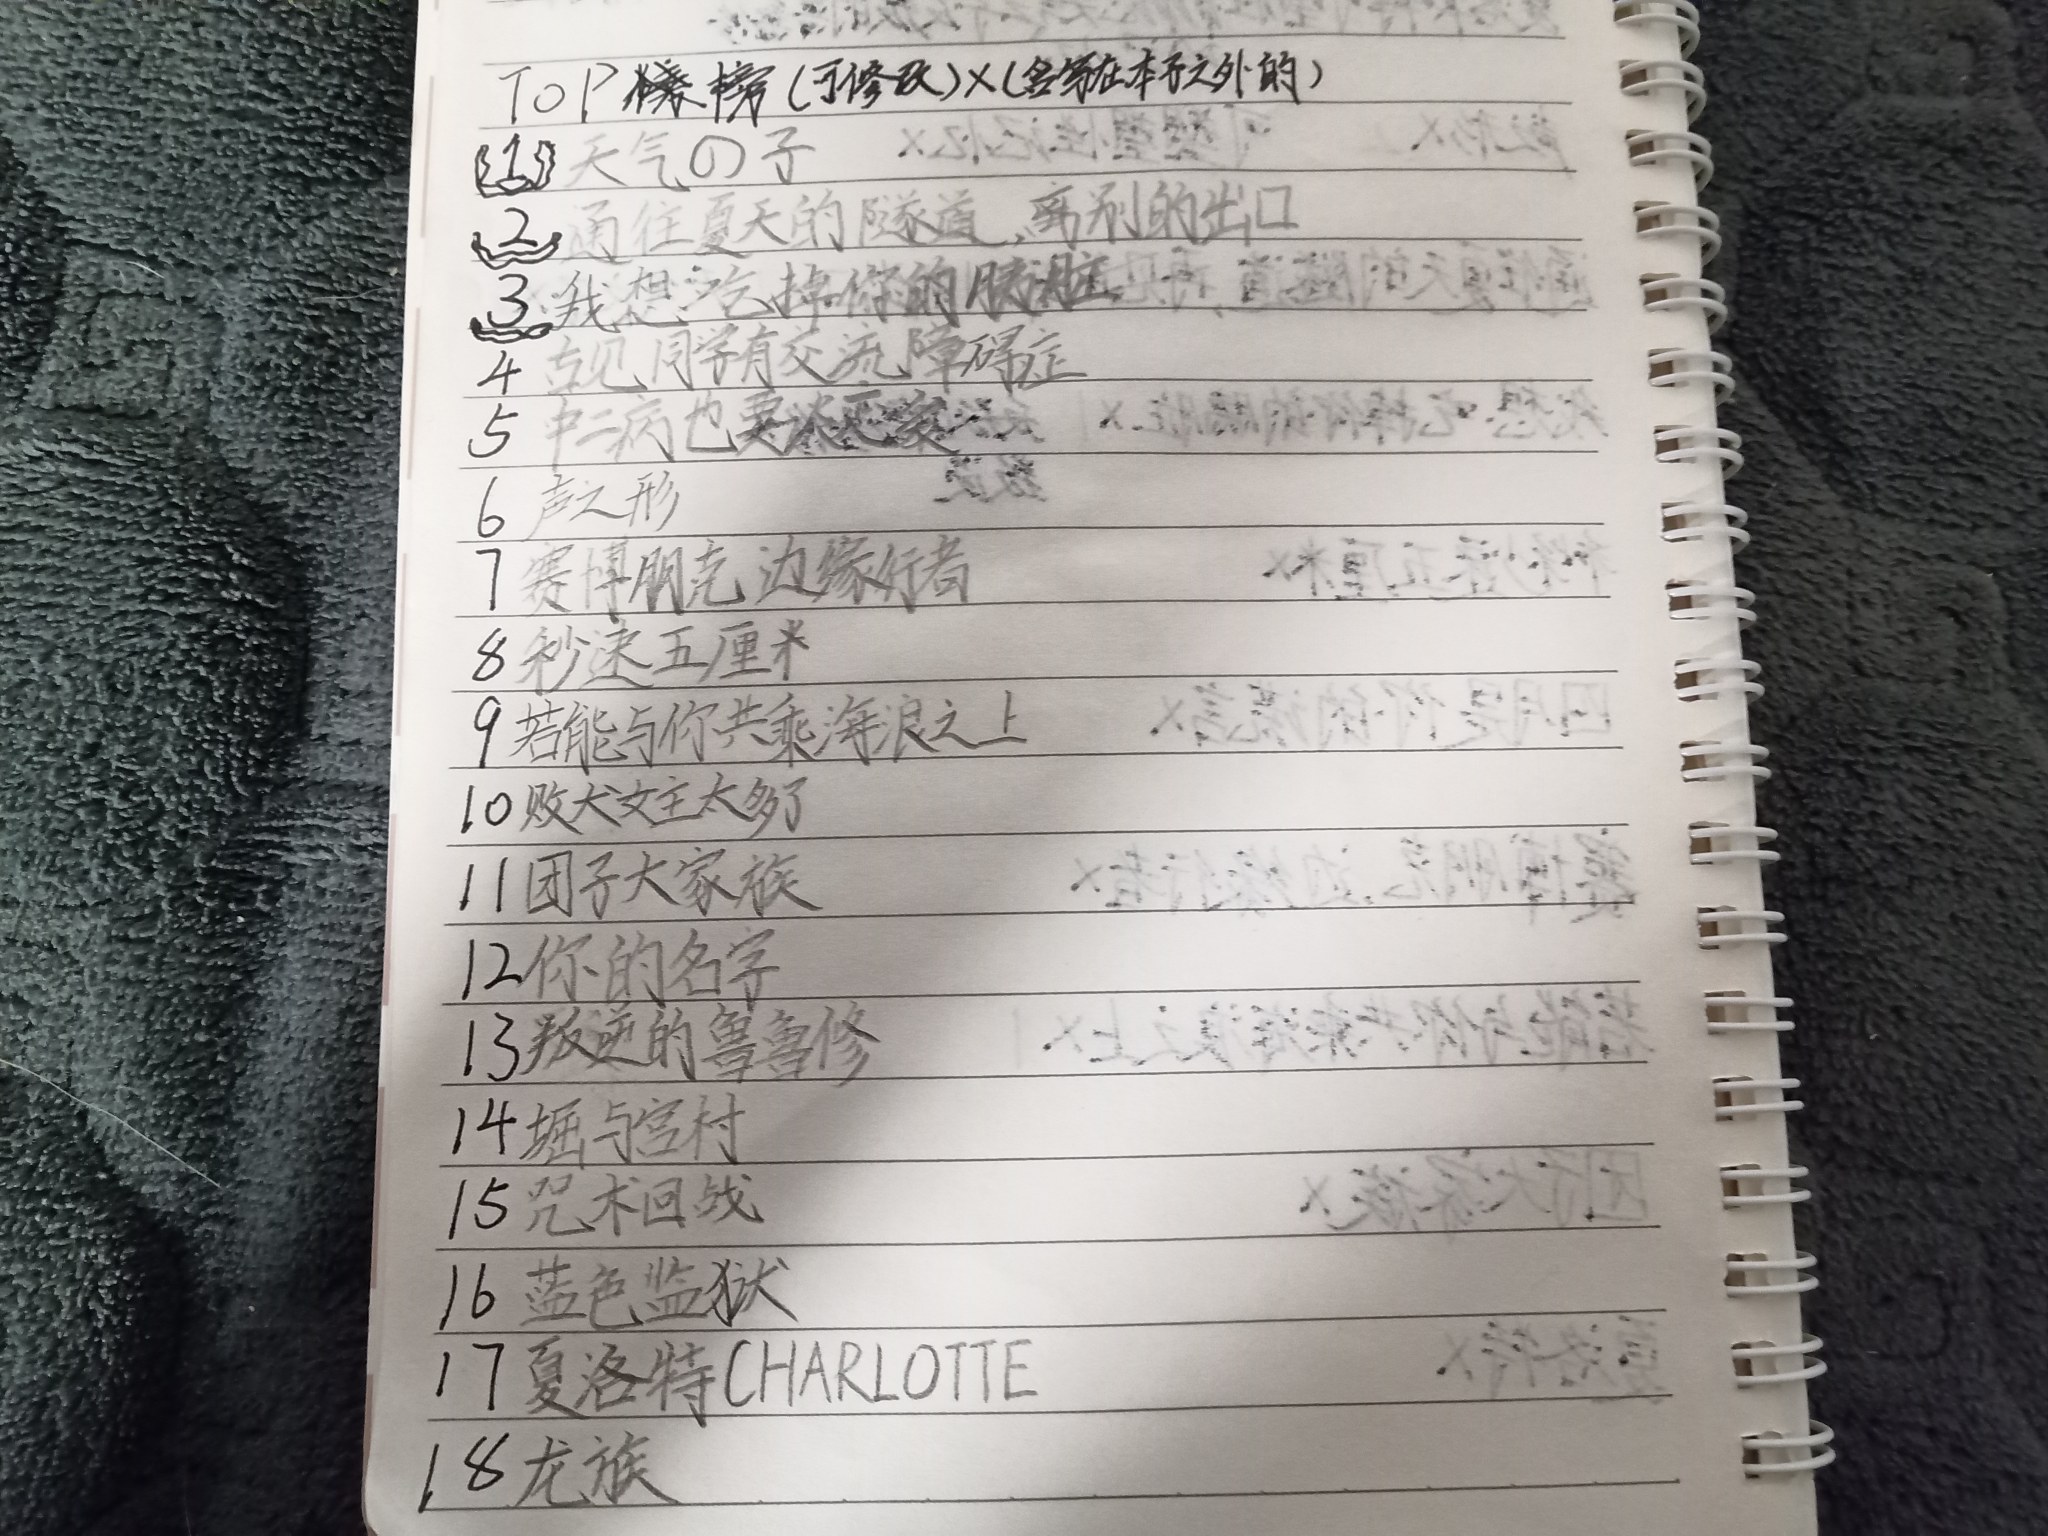 TOP 榜(可修改)×(含写在本子之外的)
1 天气の子
2 通往夏天的隧道,离别的出口
3 我想吃掉你的胰脏
4 古见同学有交流障碍症
5 中二病也要谈恋爱
6 声之形
7 赛博朋克 边缘行者
8 秒速五厘米
9 若能与你共乘海浪之上
10 败犬女主太多了
11 团子大家族
12 你的名字
13 叛逆的鲁鲁修
14 堀与宫村
15 咒术回战
16 蓝色监狱
17 夏洛特CHARLOTTE
18 龙族